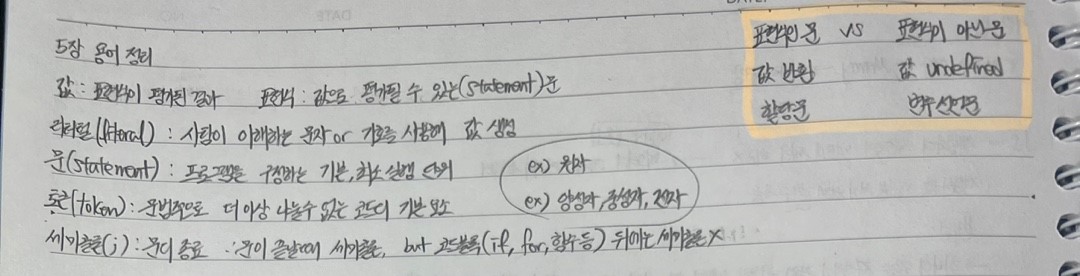 5장 용어 정리
값 : 표현식이 평가된 결과 표현식 : 값으로 평가될 수 있는(statement)문
리터럴(literal) : 사람이 이해하는 문자 or 기호를 사용해 값 생성
문(statement) : 프로그램을 구성하는 기본, 최소 실행 단위
ex) 원자
토큰(token) : 문법적으로 더 이상 나눌 수 없는 코드의 기본 요소
ex) 양성자, 중성자, 전자
세미콜론(;) : 문의 종료 ∴ 문이 끝날때 세미콜론, but 코드블록(if, for, 함수 등) 뒤에는 세미콜론 X
표현식인 문 VS 표현식이 아닌 문
값 반환 값 undefined
할당문 변수 선언문